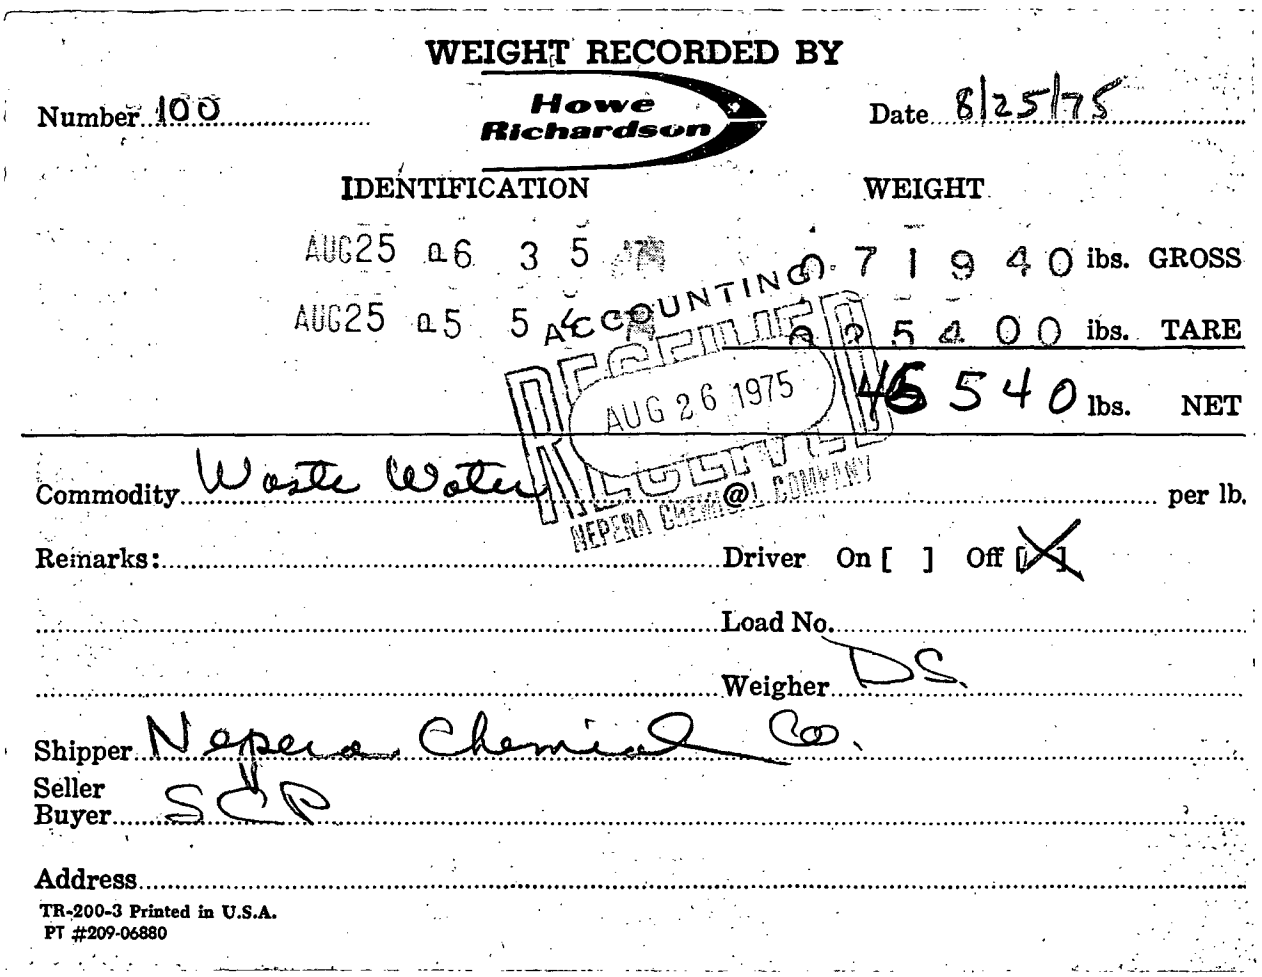 WEIGHT RECORDED BY
Number 100
Howe
Richardson
Date 8/25/75
IDENTIFICATION WEIGHT
AUG25 a6 3 5 071940 lbs. GROSS
AUG25 a5 5 4 025400 lbs. TARE
ACCOUNTING
RECEIVED
AUG 26 1975
RECEIVED
NEPERA CHEMICAL COMPANY
46540 lbs. NET
Commodity Waste Water @ per lb.
Remarks: Driver On [ ] Off [X]
Load No.
Weigher DS.
Shipper Nepera Chemical Co.
Seller
Buyer SCP
Address
TR-200-3 Printed in U.S.A.
PT #209-06880